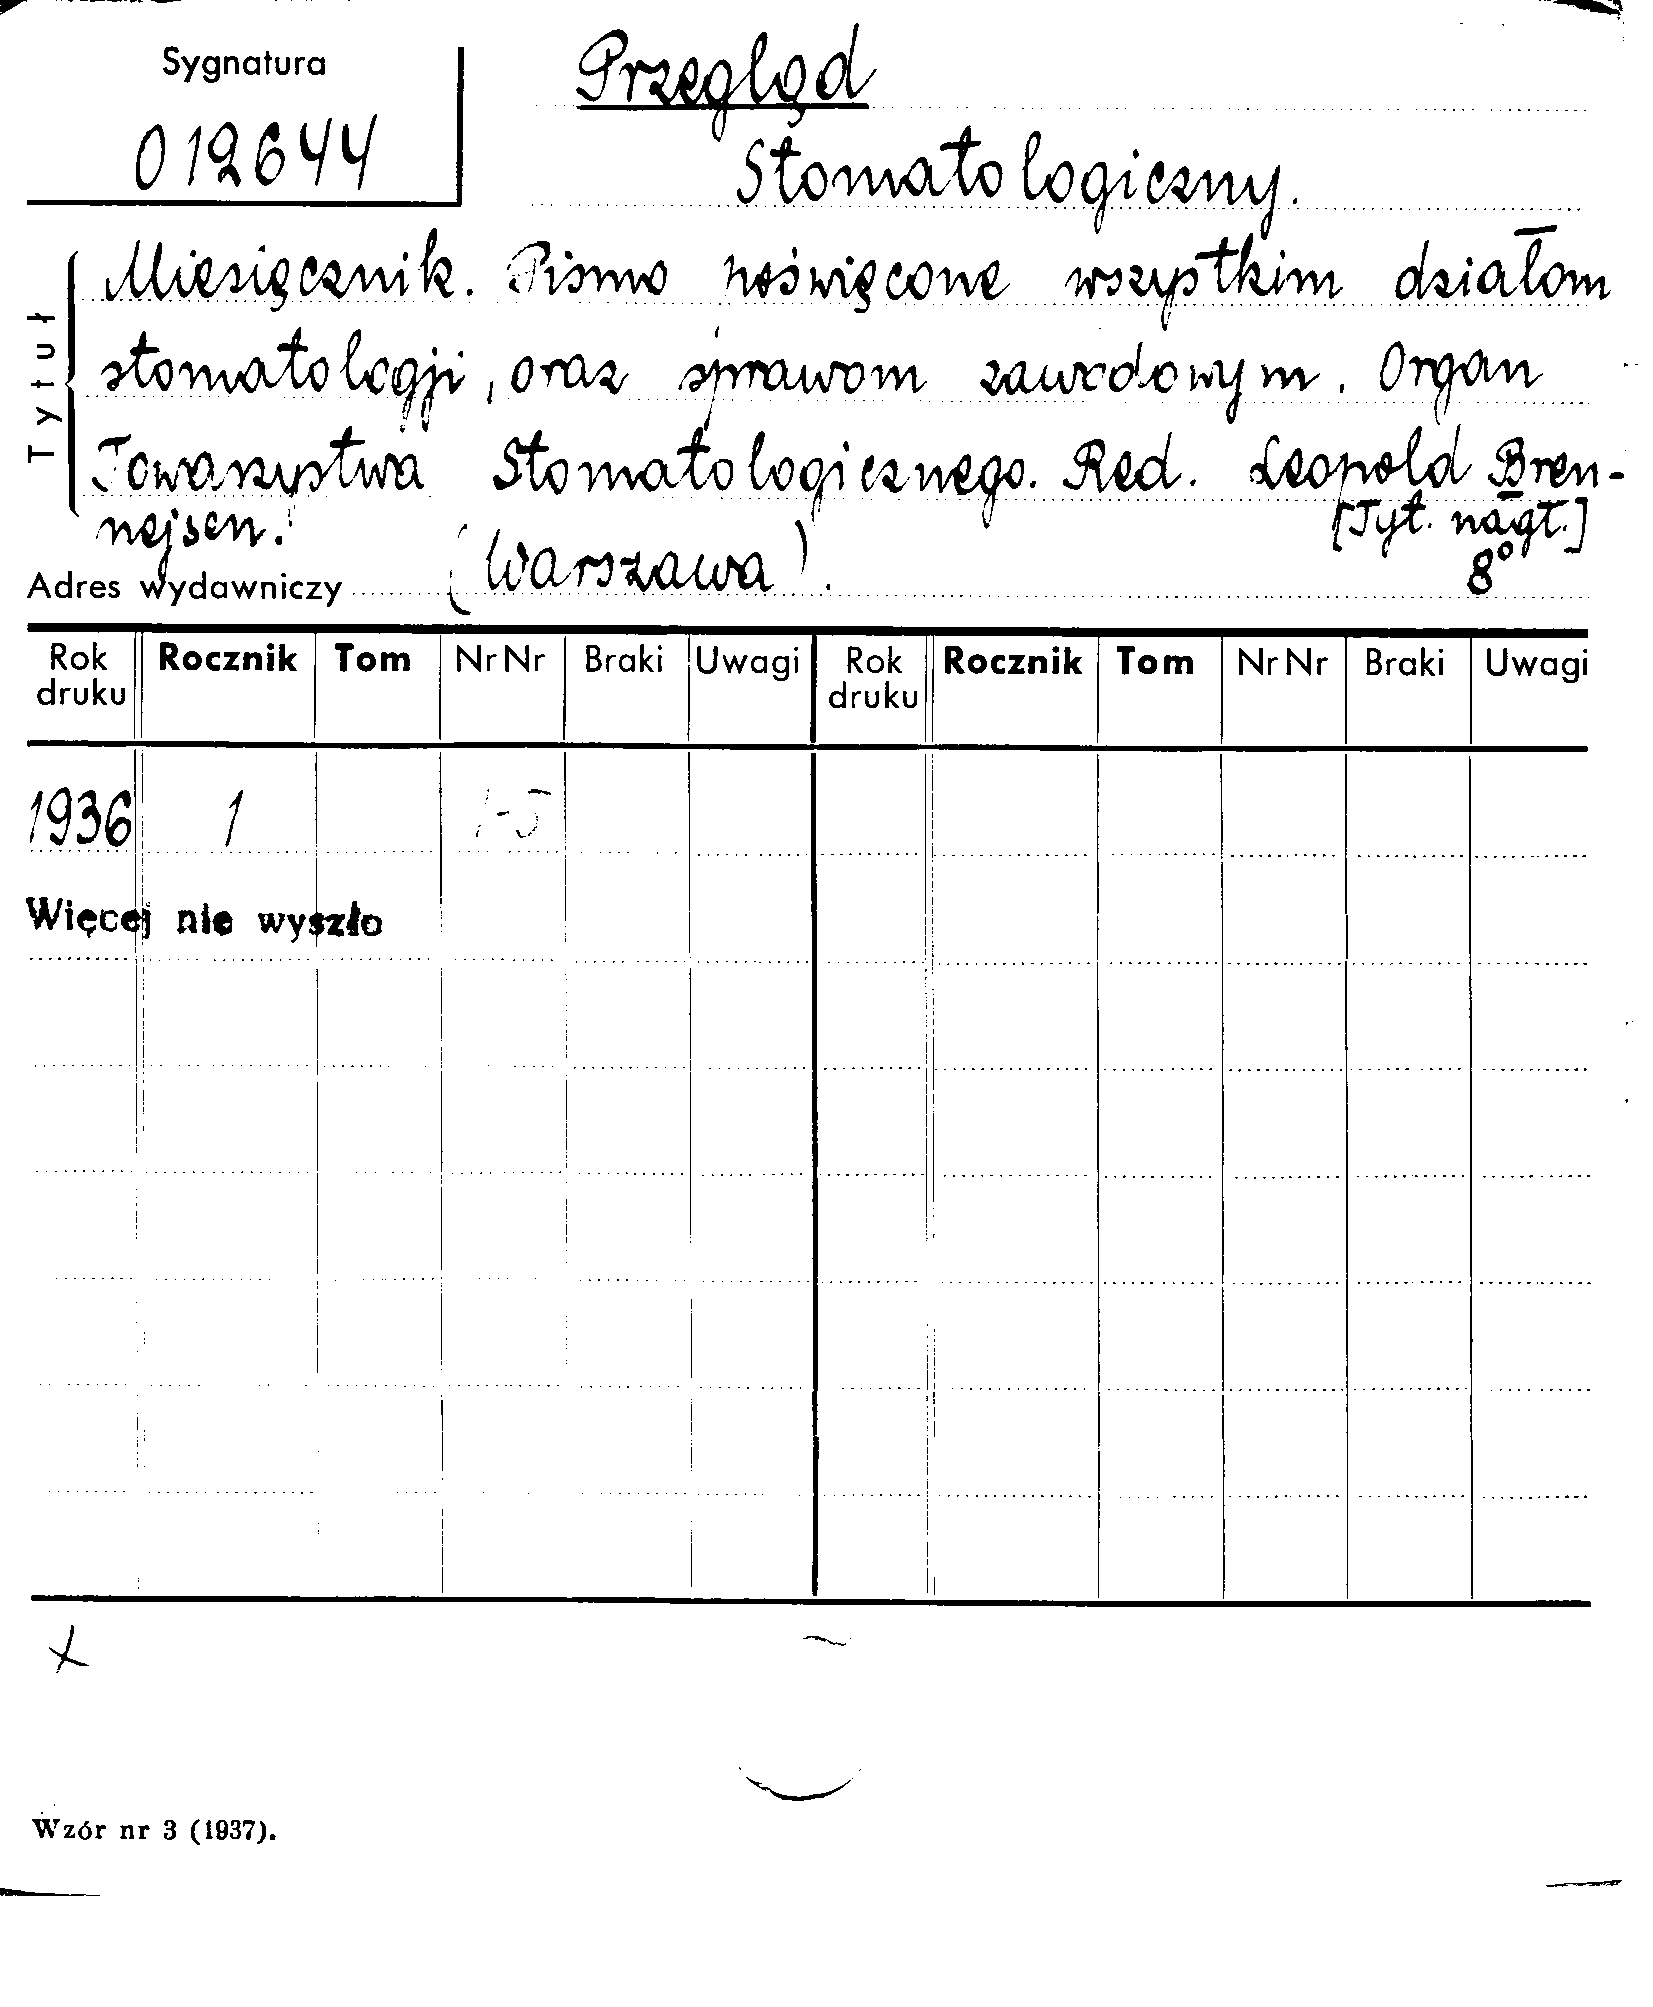 Sygnatura
012644
Przegląd
Stomatologiczny.
Tytuł
Miesięcznik. Pismo poświęcone wszystkim działom
stomatologji, oraz sprawom zawodowym. Organ
Towarzystwa Stomatologicznego. Red. Leopold Bren-
nejsen.
[Tyt. nagł.]
Adres wydawniczy (Warszawa). 8°
Rok druku Rocznik Tom Nr Nr Braki Uwagi Rok druku Rocznik Tom Nr Nr Braki Uwagi
1936 1 1-5
Więcej nie wyszło
Wzór nr 3 (1937).